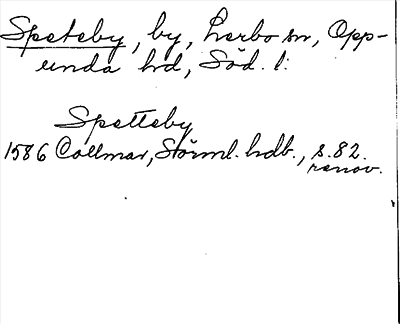 Spetеby, by, Lerbo sn, Opp-
unda hd, Söd. l:
Spetteby
1586 Collmar, Störml. hdb., s. 82.
renov.